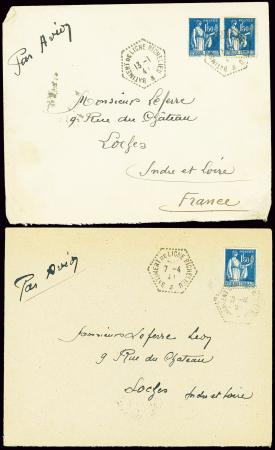 Par Avion
BATIMENT DE LIGNE RICHELIEU
13-1
41
POSTES
1F50
POSTES
1F50
Monsieur Leferre
9 Rue du Château
Loches
Indre et Loire
France
Par Avion
BATIMENT DE LIGNE RICHELIEU
7-4
POSTES
1F50
Monsieur Leferre
9 Rue du Château
Loches
Indre et Loire